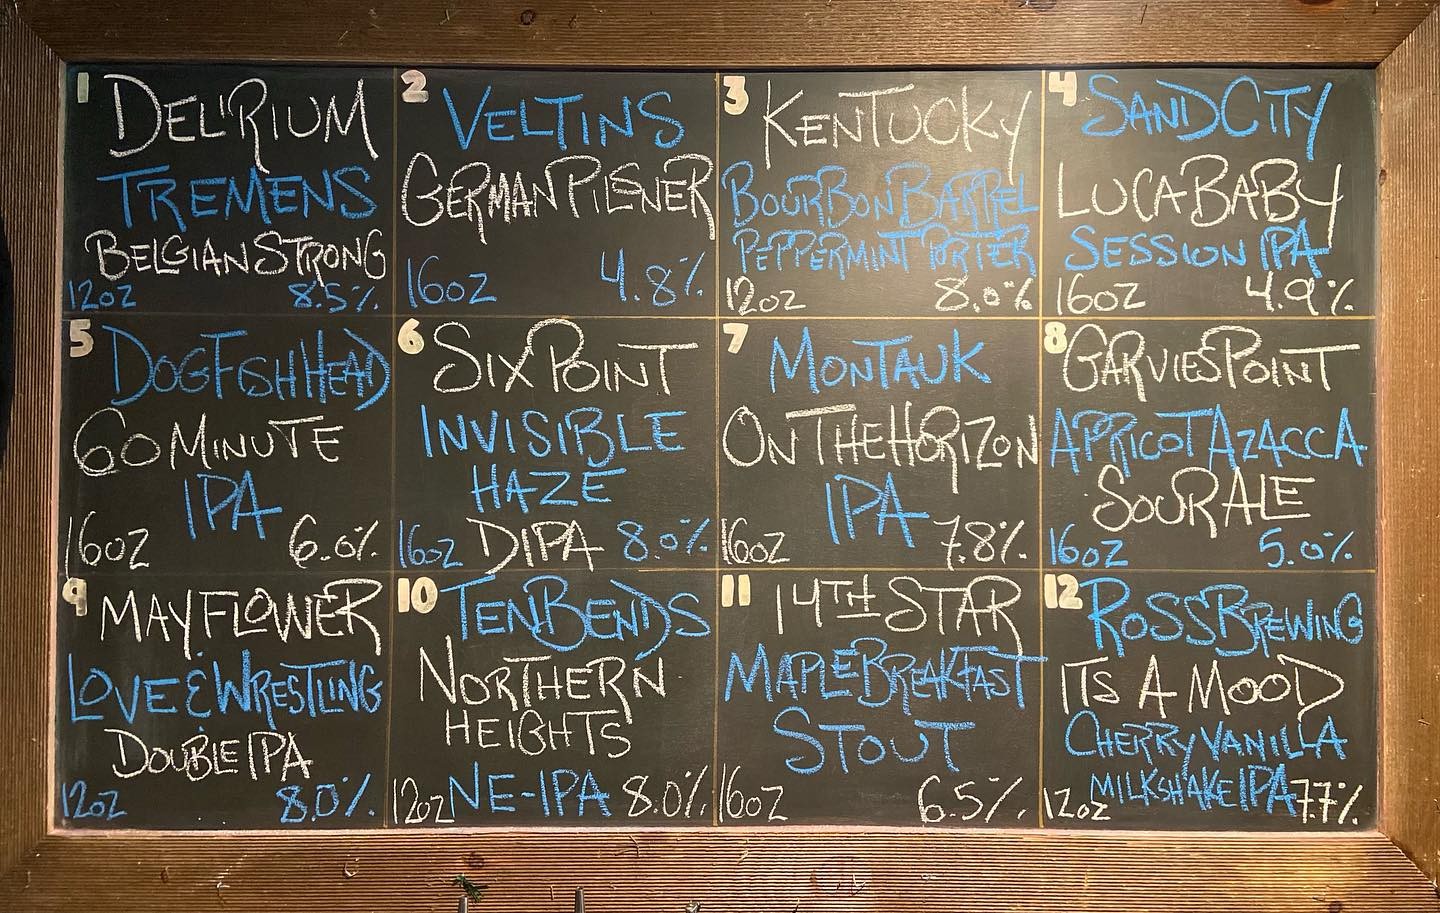 1 DELIRIUM
TREMENS
BELGIAN STRONG
12oz 8.5%
2 VELTINS
GERMAN PILSNER
16oz 4.8%
3 KENTUCKY
BOURBON BARREL
PEPPERMINT PORTER
12oz 8.0%
4 SAND CITY
LUCA BABY
SESSION IPA
16oz 4.9%
5 DOGFISH HEAD
60 MINUTE
IPA
16oz 6.0%
6 SIXPOINT
INVISIBLE
HAZE
16oz DIPA 8.0%
7 MONTAUK
ON THE HORIZON
IPA
16oz 7.8%
8 GARVIES POINT
APRICOT AZACCA
SOUR ALE
16oz 5.0%
9 MAYFLOWER
LOVE & WRESTLING
DOUBLE IPA
12oz 8.0%
10 TEN BENDS
NORTHERN
HEIGHTS
12oz NE-IPA 8.0%
11 14TH STAR
MAPLE BREAKFAST
STOUT
16oz 6.5%
12 ROSS BREWING
ITS A MOOD
CHERRY VANILLA
12oz MILKSHAKE IPA 7.7%